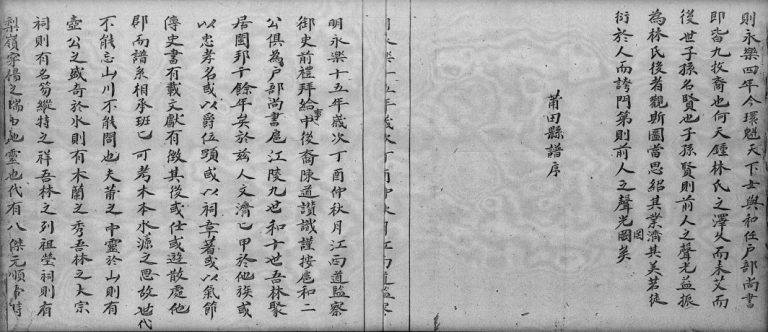 則永樂四年今環魁天下士與和任戶部尚書
即皆九牧裔也何天鍾林氏之澤久而未艾而
後世子孫名賢也子孫賢則前人之聲光益振
為林氏後者觀斯圖當思紹其業濟其美若徒
衍於人而誇門第則前人之聲光圖矣
莆田縣譜序
明永樂十五年歲次丁酉仲秋月江西道監察
御史前禮拜給事中後裔陳道讚識謹按扈和二
公俱為戶部尚書扈江陵九世和十世吾林聚
居閩邦千餘年矣於茲人文濟已甲於他族或
以忠孝名或以爵位顯或以祠章著或以氣節
傳史書有載文獻有徵其後或仕或遊散處他
郡而譜系相承班已可考木本水源之思故世代
不能忘山川不能間也夫莆之中靈於山則有
壺公之盛奇於水則有木蘭之秀吾林之大宗
祠則有名芴縱特之祥吾林之列祖塋祠則有
梨嶺寧僞之瑞由地靈也代有八傑元順帝時